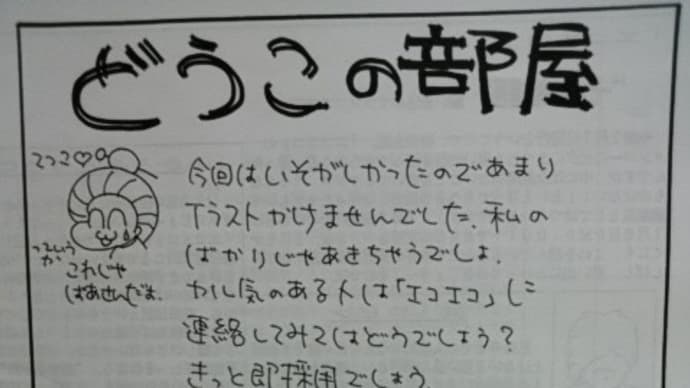 どうこの部屋
てつこ♡
っていうか
これじゃ
ばあさんだよ。
今回はいそがしかったのであまり
イラストかけませんでした。私の
ばかりじゃあきちゃうでしょ。
カル気のある人は「エコエコ」に
連絡してみてはどうでしょう?
きっと即採用でしょう。